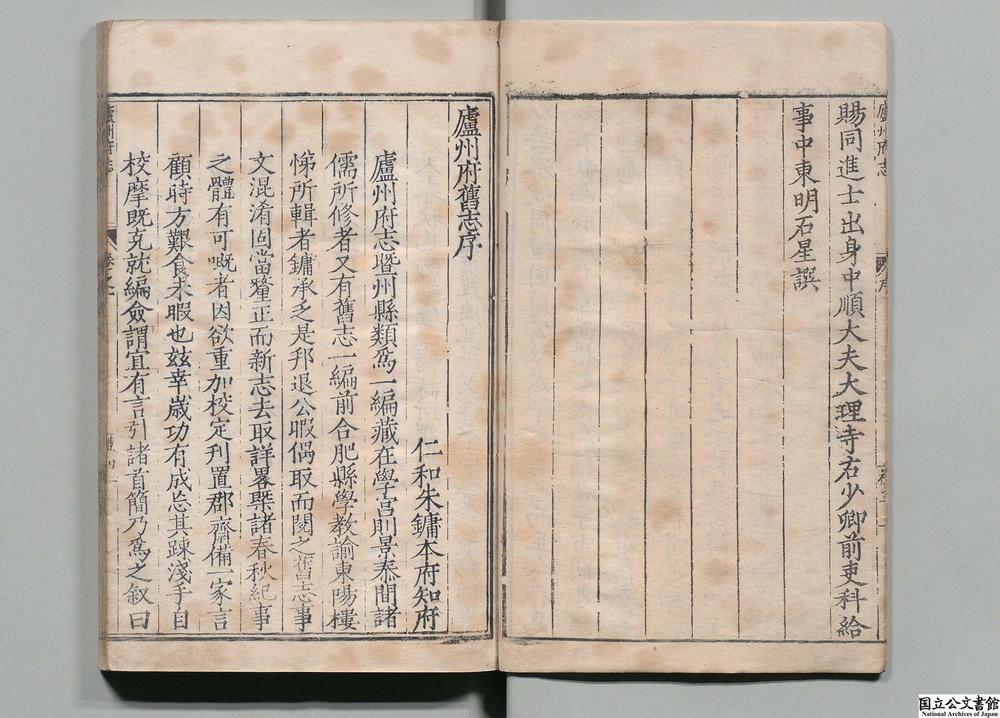 廬州府志
賜同進士出身中順大夫大理寺右少卿前吏科給
事中東明石星譔
廬州府舊志序
仁和朱鏞本府知府
廬州府志暨州縣類爲一編藏在學宮則景泰間諸
儒所修者又有舊志一編前合肥縣學教諭東陽樓
悌所輯者鏞承乏是邦退公暇偶取而閱之舊志事
文混淆固當釐正而新志去取詳畧槩諸春秋紀事
之體有可嘅者因欲重加校定刋置郡齋備一家言
顧時方艱食未暇也玆幸歲功有成忘其踈淺手自
校摩既克就編僉謂宜有言引諸首簡乃爲之叙曰
廬州府志
卷之一
国立公文書館
National Archives of Japan